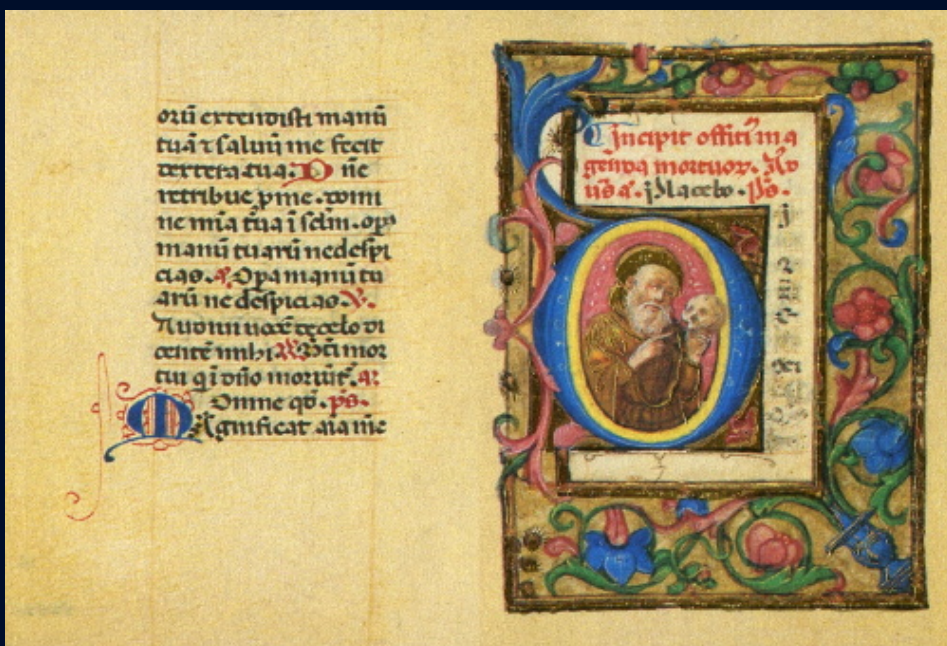 orū extendisti manū
tuā ⁊ saluū me fecit
dextera tua. D ñe
retribue ꝑ me. domi
ne mīa tua ī sclm. opa
manū tuarū ne despi
cias. a. Opa manū tu
arū ne despicias. V.
Audiui uocē de celo di
centē mihi R Bti mor
tui q ī dño moriūt. a
Omne qd. ps.
Magnificat aīa me
Incipit offitiū in a
genda mortuoꝝ. Ad
uss a. Placebo. ps.